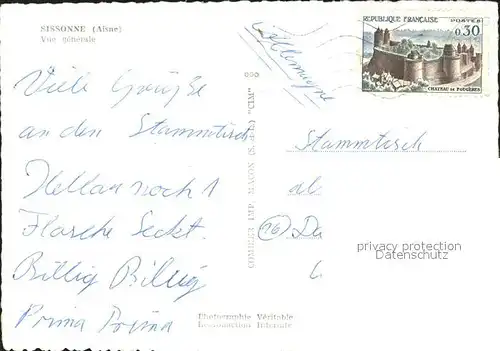 SISSONNE (Aisne)
Vue générale
Allemagne
RÉPUBLIQUE FRANÇAISE POSTES
0,30
CHATEAU DE FOUGÈRES
Viele Grüße
an den Stammtisch
noch 1
Flasche Seckt.
Billig Billig
Prima Prima
COMBIER IMP. MACON (S.-et-L.) "CIM"
Stammtisch
al
(16) Da
privacy protection
Datenschutz
Photographie Véritable